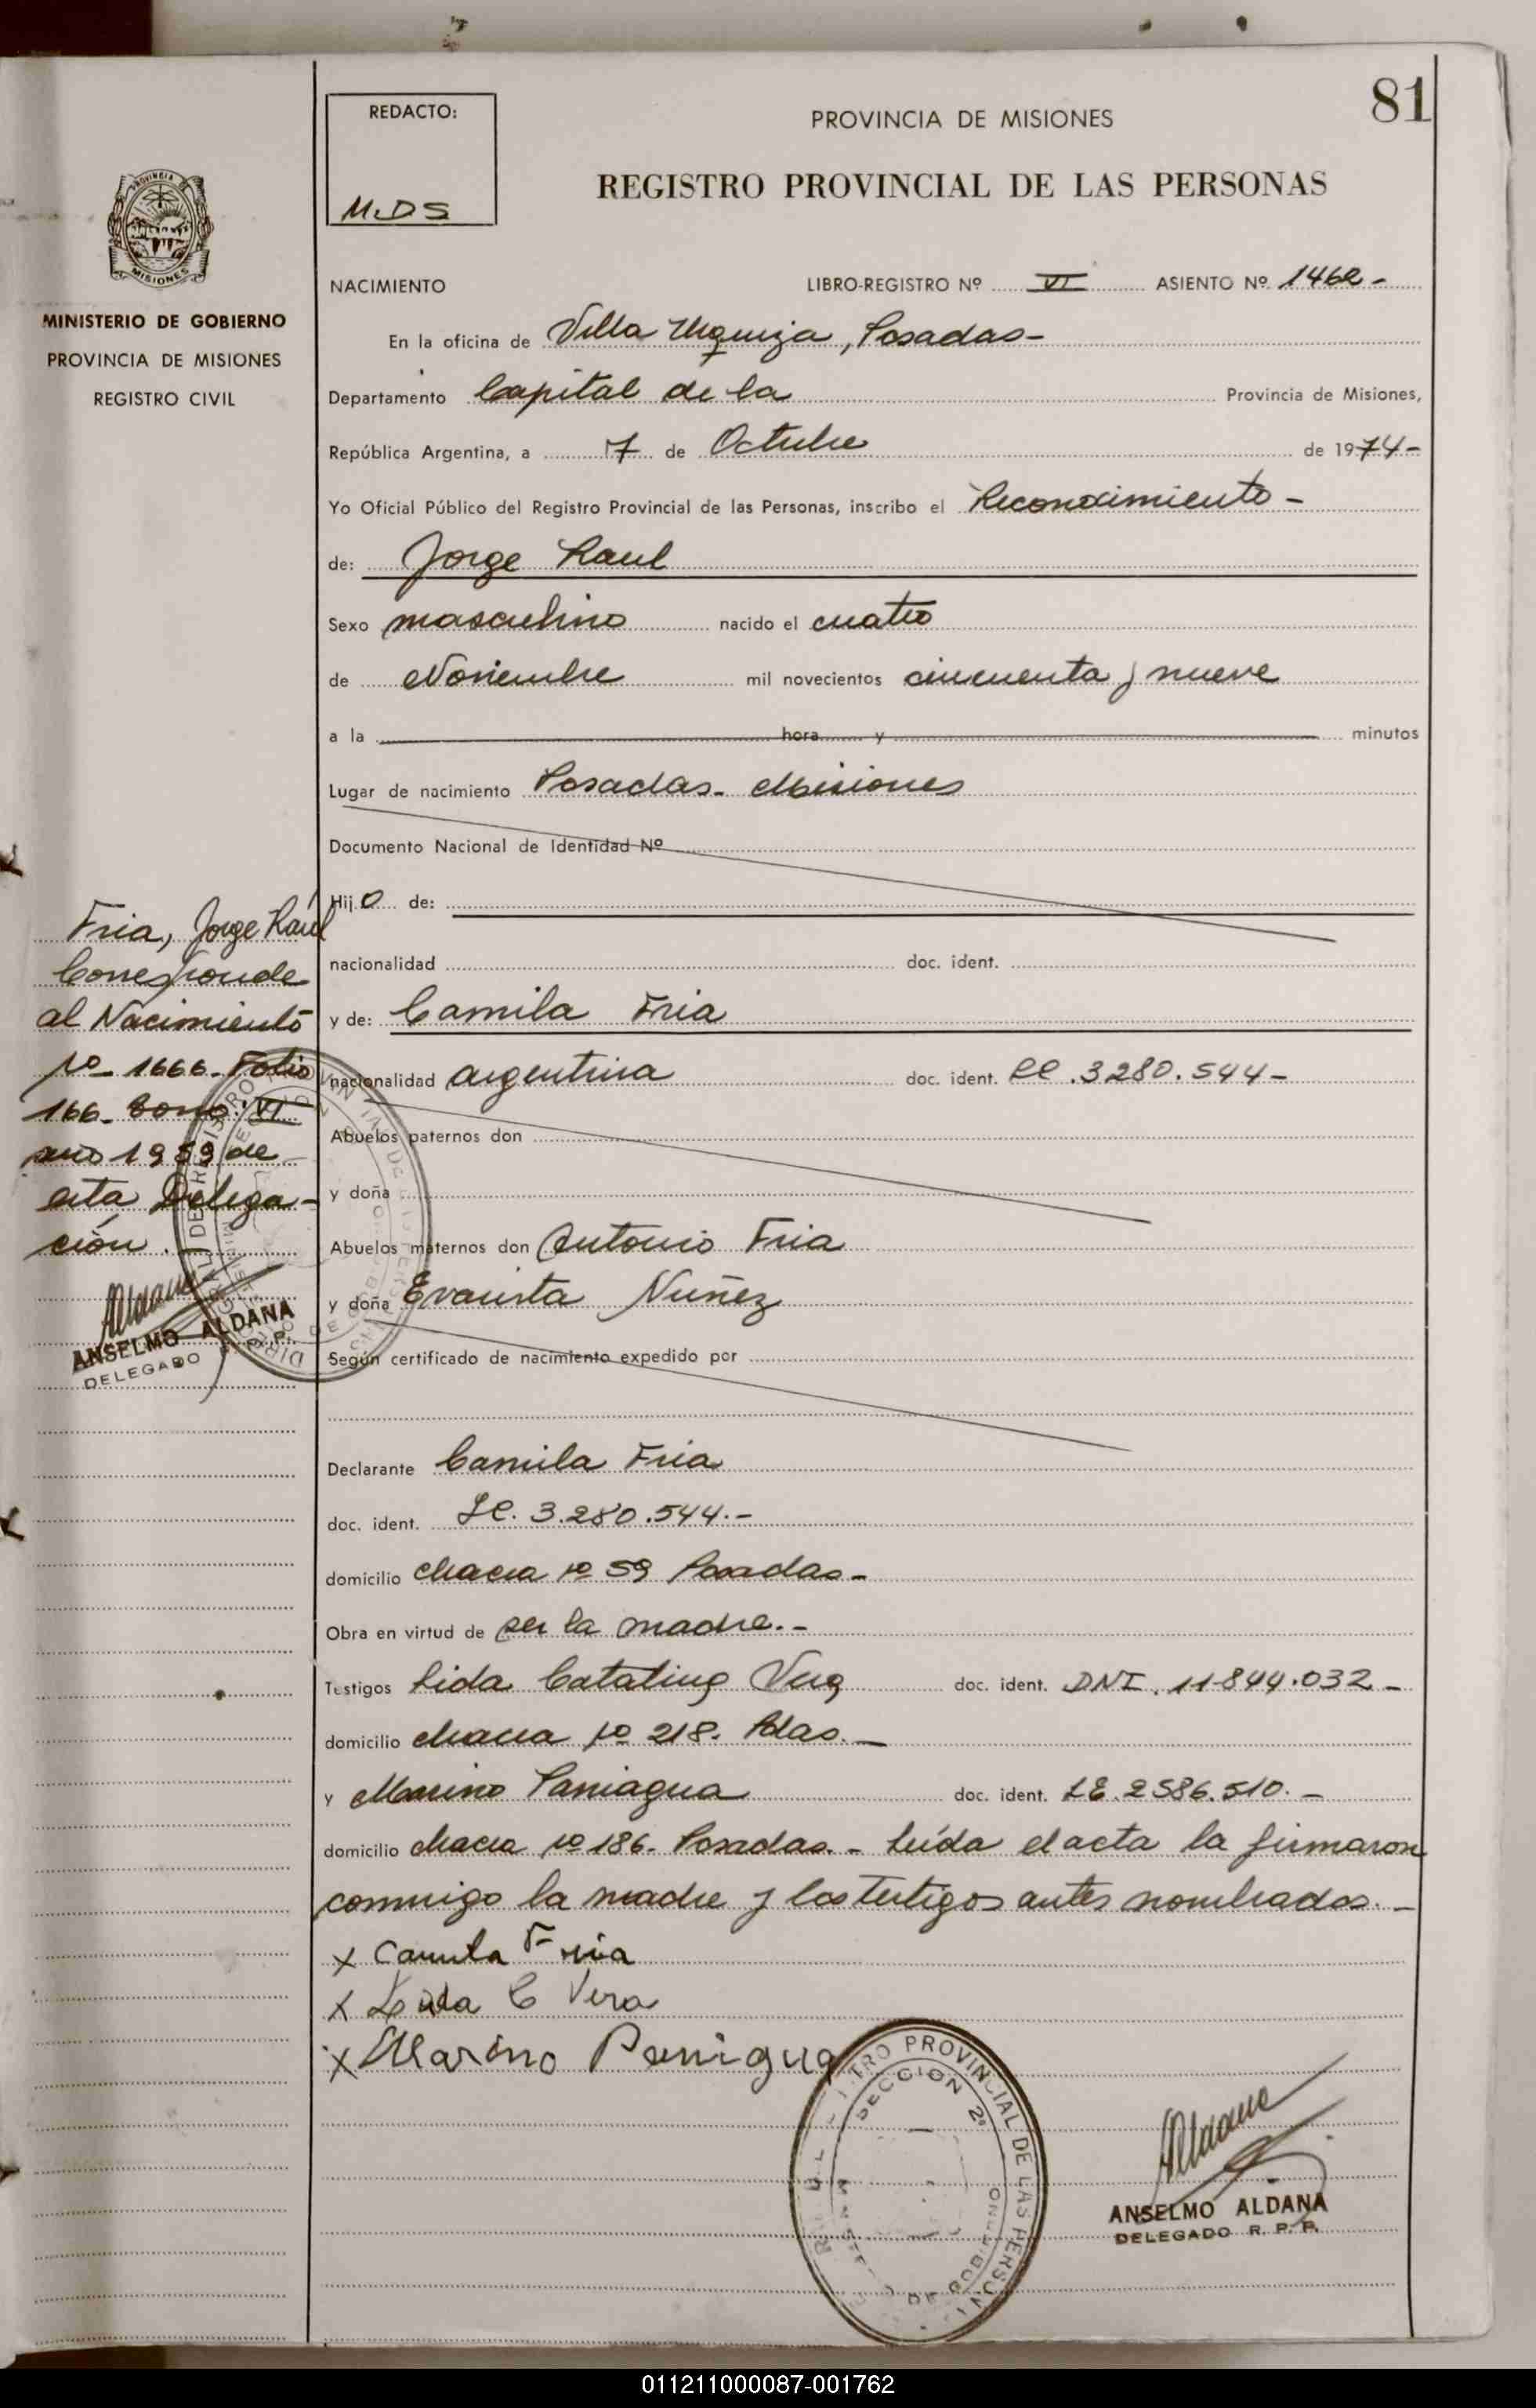 81
REDACTO:
M.D S
PROVINCIA DE MISIONES
REGISTRO PROVINCIAL DE LAS PERSONAS
PROVINCIA DE
MISIONES
MINISTERIO DE GOBIERNO
PROVINCIA DE MISIONES
REGISTRO CIVIL
NACIMIENTO LIBRO-REGISTRO Nº VI ASIENTO Nº 1462-
En la oficina de Villa Urquiza, Posadas-
Departamento Capital de la Provincia de Misiones,
República Argentina, a 7 de Octubre de 1974-
Yo Oficial Público del Registro Provincial de las Personas, inscribo el Reconocimiento-
de: Jorge Raul
Sexo masculino nacido el cuatro
de Noviembre mil novecientos cincuenta y nueve
a la hora y minutos
Lugar de nacimiento Posadas- Misiones
Documento Nacional de Identidad Nº
Hijo de:
nacionalidad doc. ident.
y de: Camila Fria
nacionalidad argentina doc. ident. 3280.544-
Abuelos paternos don
y doña
Abuelos maternos don Antonio Fria
y doña Evarista Nuñez
Según certificado de nacimiento expedido por
Declarante Camila Fria
doc. ident. LC. 3.280.544.-
domicilio chacra Nº 59 Posadas-
Obra en virtud de ser la madre.-
Testigos Lida Catalina Vera doc. ident. DNI. 11.844.032-
domicilio chacra Nº 218. Pdas.-
y Marino Paniagua doc. ident. LE. 2586.510.-
domicilio chacra Nº 186. Posadas.- Leída el acta la firmaron
conmigo la madre y los testigos antes nombrados.-
x Camila Fria
x Lida C Vera
x Marino Panigua
Fria, Jorge Raúl
Corresponde
al Nacimiento
Nº 1666- Folio
166- Tomo: VI
año 1959 de
esta Delega-
ción.
Aldana
ANSELMO ALDANA
DELEGADO R. P. P.
PROVINCIAL DE LAS PERSON
SECCION 2ª
DE GOBIERNO
Aldana
ANSELMO ALDANA
DELEGADO R. P. P.
011211000087-001762